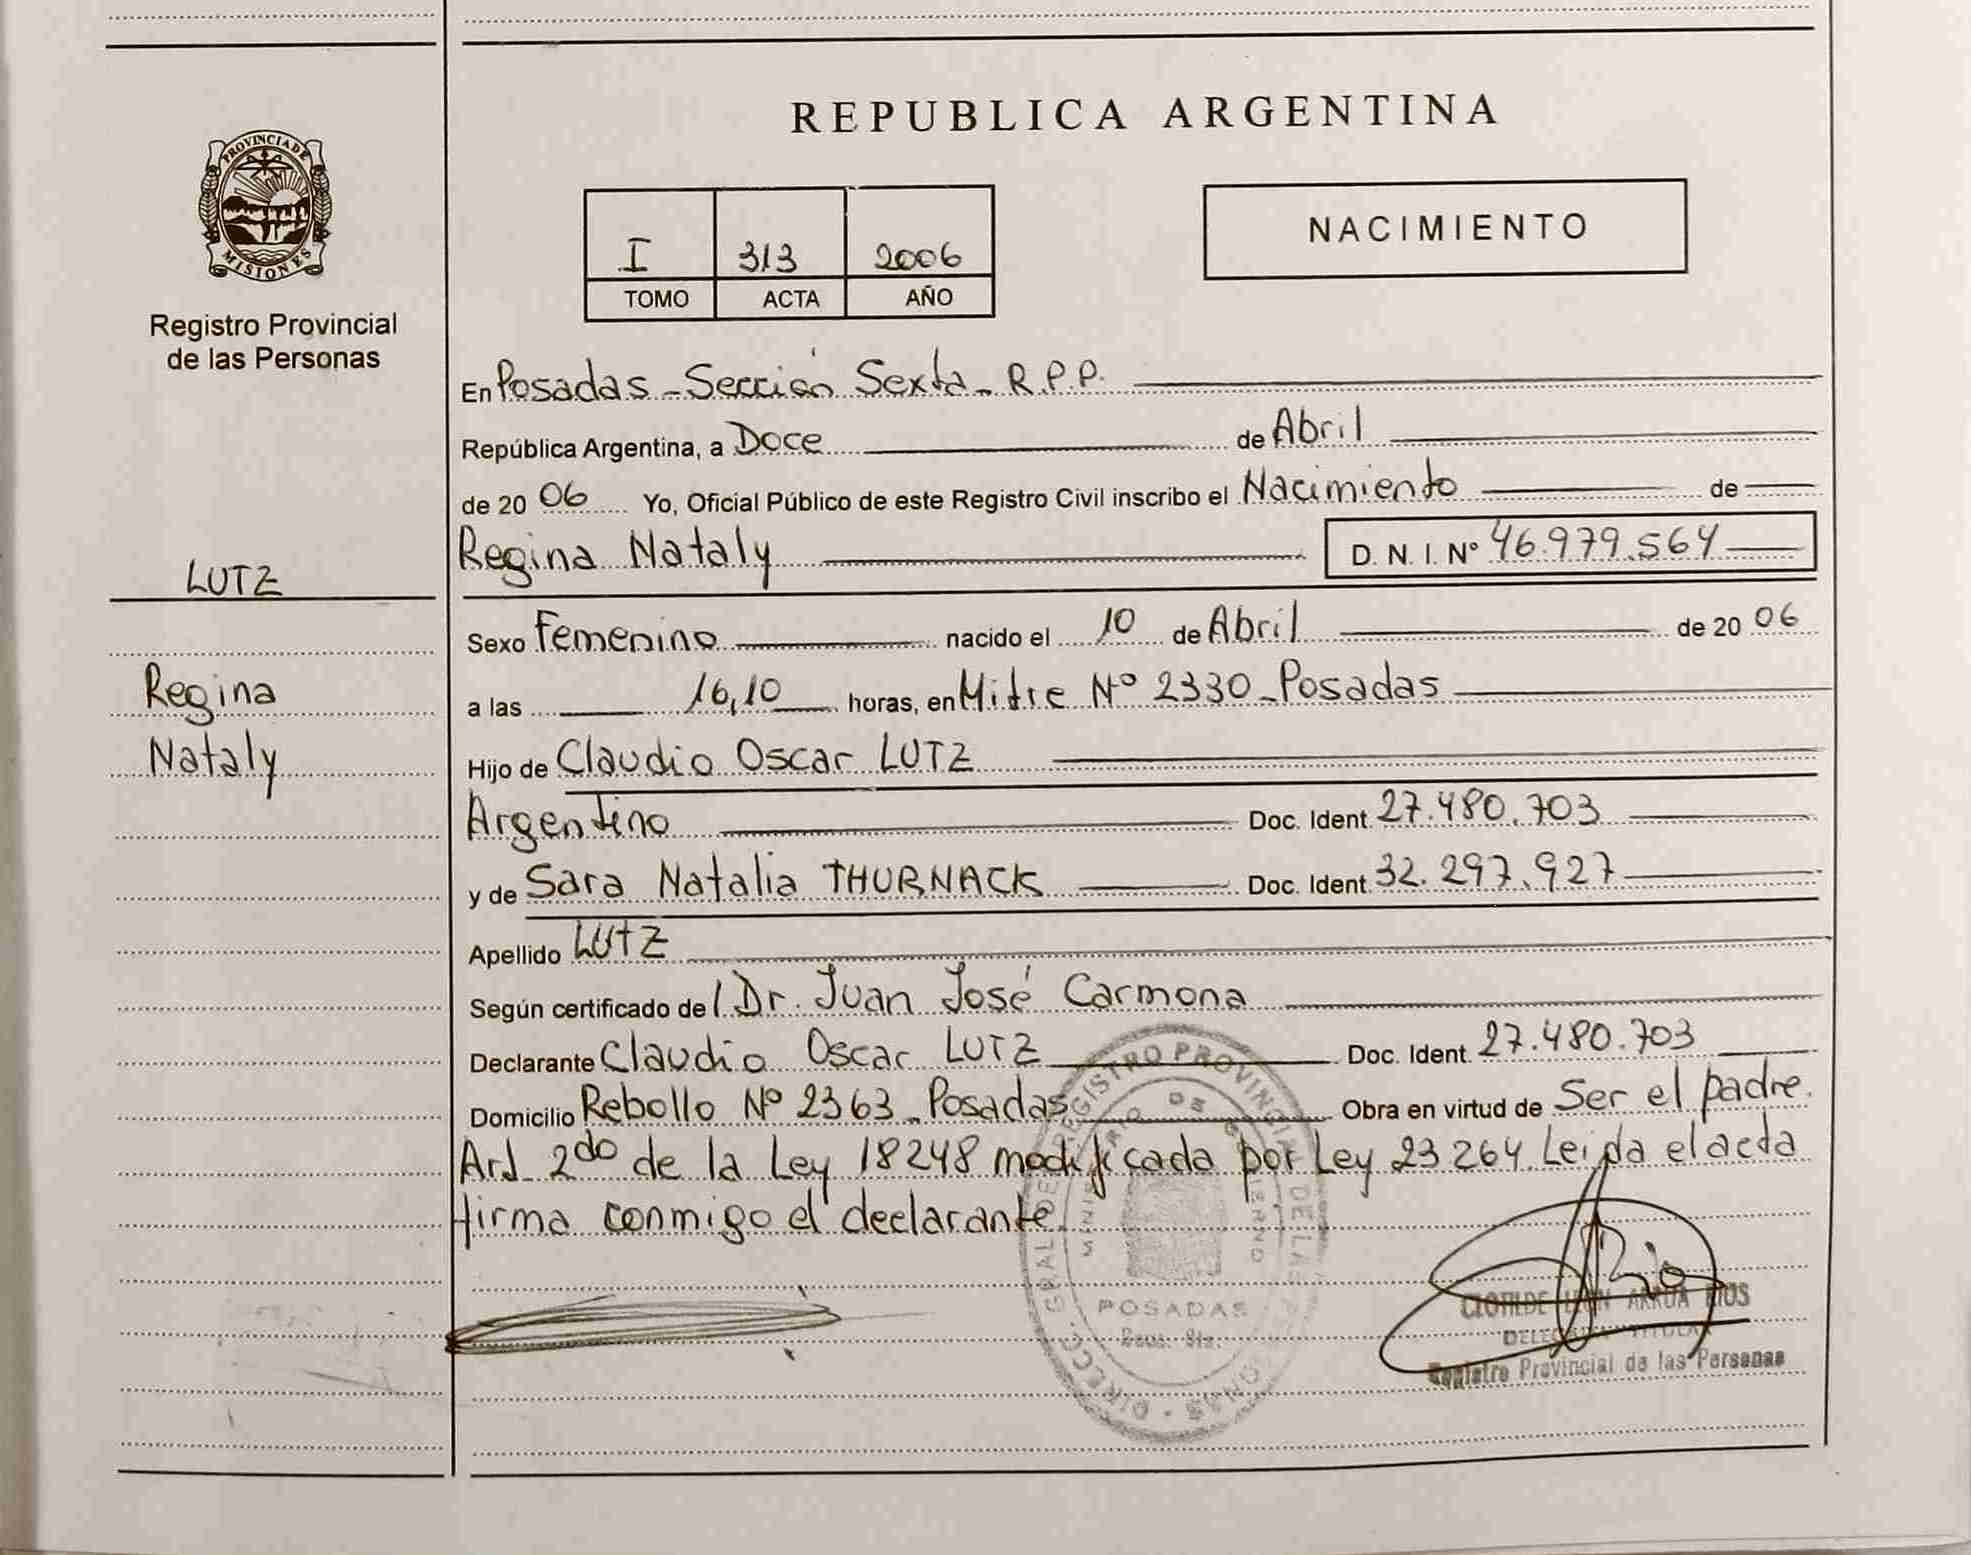 REPUBLICA ARGENTINA
PROVINCIA DE
MISIONES
Registro Provincial
de las Personas
NACIMIENTO
I 313 2006
TOMO ACTA AÑO
En Posadas - Sección Sexta - R.P.P.
República Argentina, a Doce de Abril
de 20 06 Yo, Oficial Público de este Registro Civil inscribo el Nacimiento de
Regina Nataly D. N. I. Nº 46.979.564
LUTZ
Regina
Nataly
Sexo Femenino nacido el 10 de Abril de 20 06
a las 16,10 horas, en Mitre Nº 2330 - Posadas
Hijo de Claudio Oscar LUTZ
Argentino Doc. Ident. 27.480.703
y de Sara Natalia THURNACK Doc. Ident. 32.297.927
Apellido LUTZ
Según certificado del Dr. Juan José Carmona
Declarante Claudio Oscar LUTZ Doc. Ident. 27.480.703
Domicilio Rebollo Nº 2363 - Posadas Obra en virtud de Ser el padre.
Art 2do de la Ley 18248 modificada por Ley 23264. Leida el acta
firma conmigo el declarante.
DIRECC. GRAL DE REGISTRO PROVINCIAL DE LAS
POSADAS
CLOTILDE ARRUA RIOS
DELEGADA TITULAR
Registro Provincial de las Personas